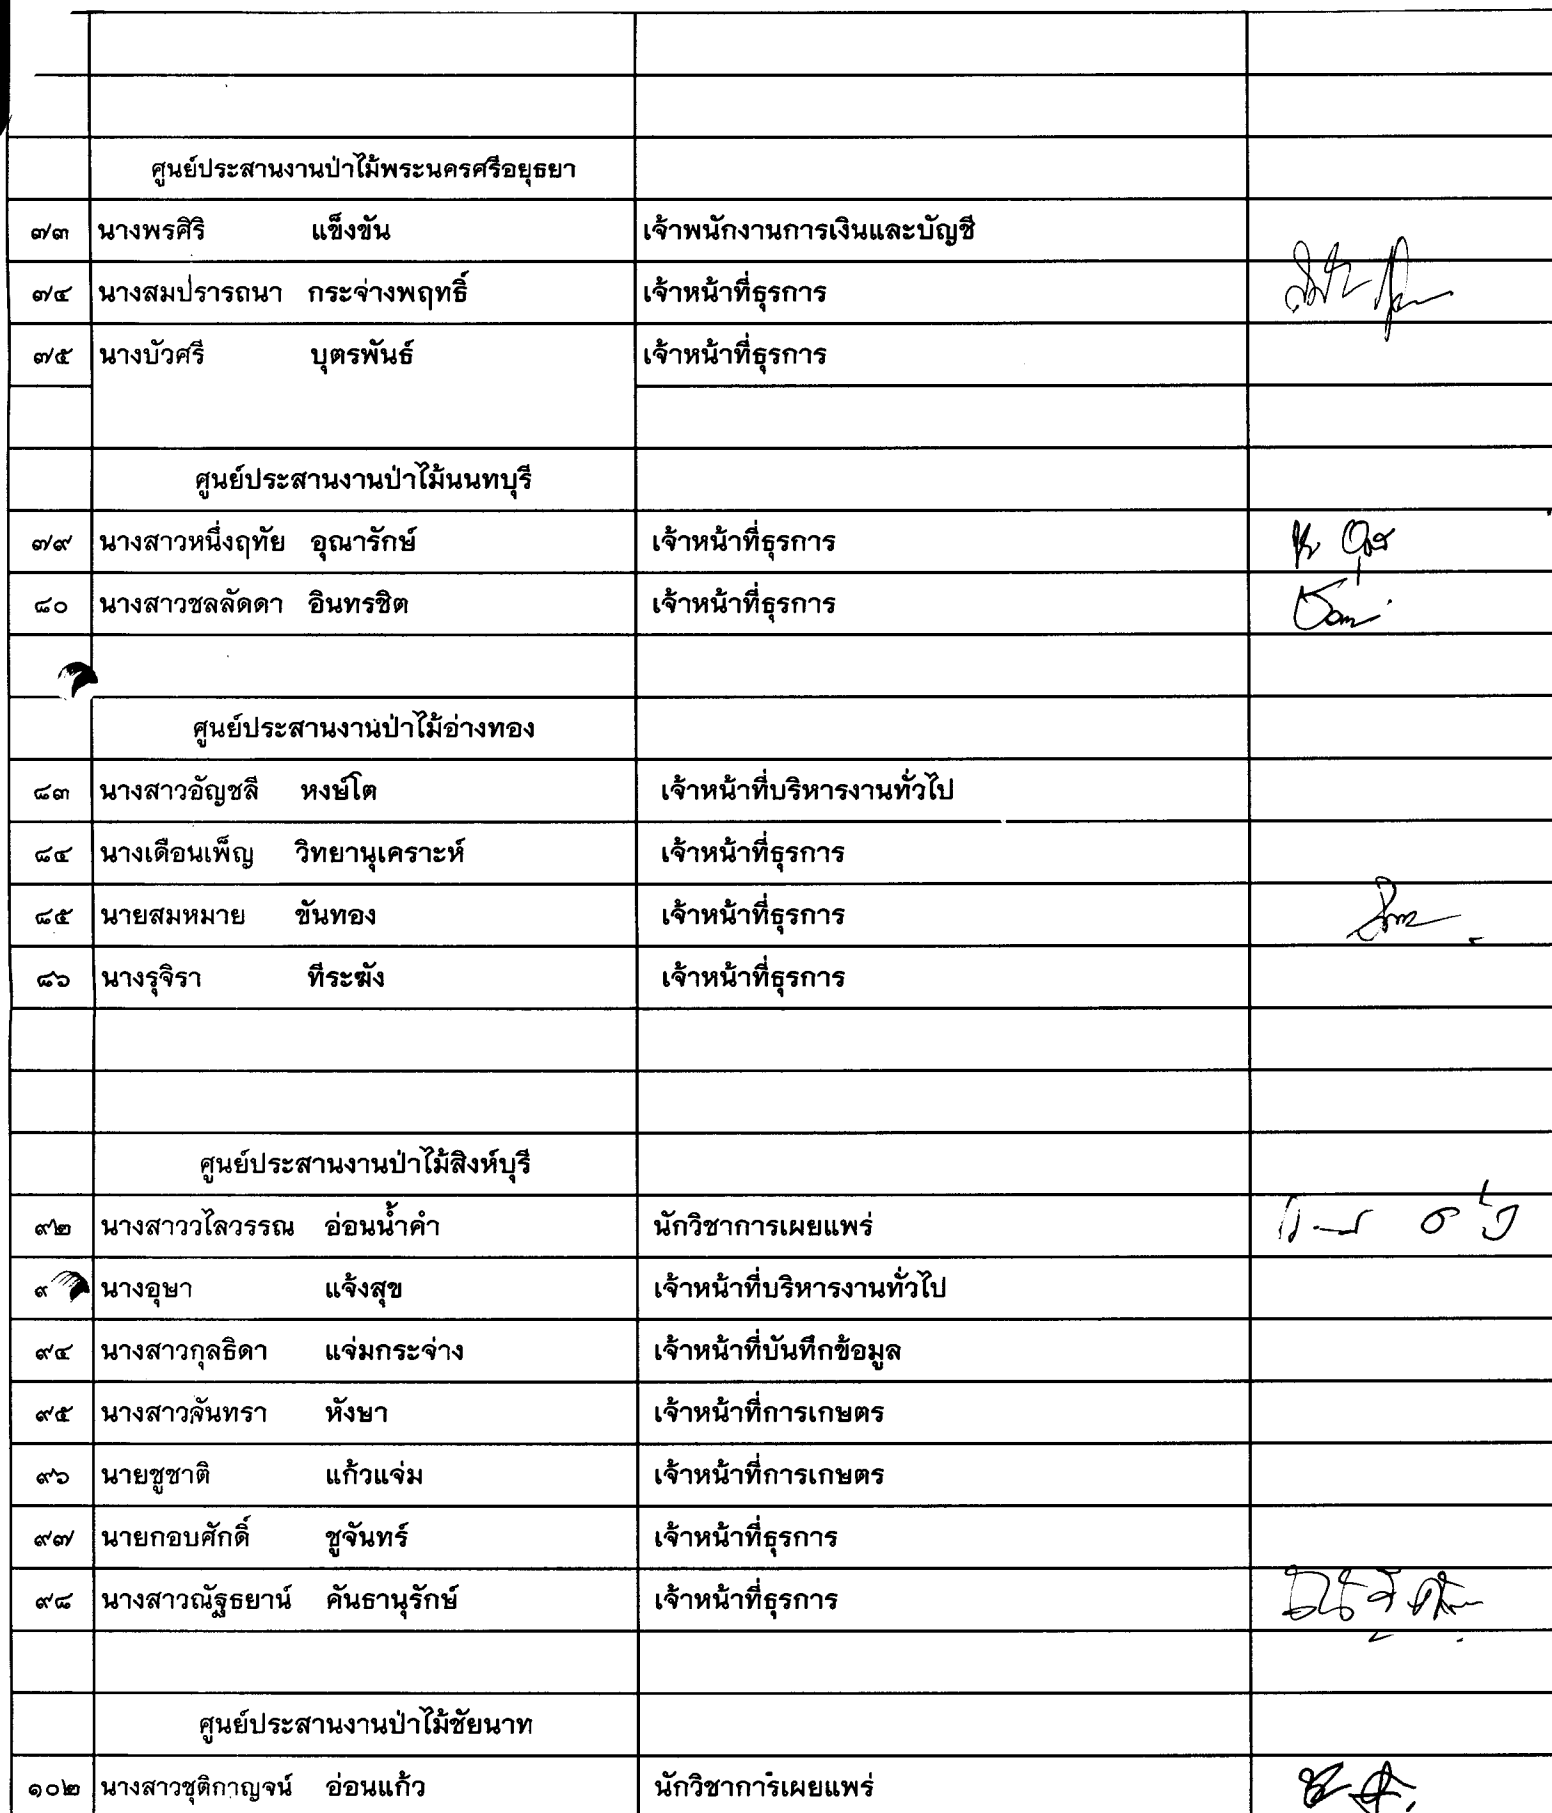 ศูนย์ประสานงานป่าไม้พระนครศรีอยุธยา
๗๓ นางพรศิริ แข็งขัน เจ้าพนักงานการเงินและบัญชี
๗๔ นางสมปรารถนา กระจ่างพฤทธิ์ เจ้าหน้าที่ธุรการ
๗๕ นางบัวศรี บุตรพันธ์ เจ้าหน้าที่ธุรการ
ศูนย์ประสานงานป่าไม้นนทบุรี
๗๙ นางสาวหนึ่งฤทัย อุณารักษ์ เจ้าหน้าที่ธุรการ
๘๐ นางสาวชลลัดดา อินทรชิต เจ้าหน้าที่ธุรการ
ศูนย์ประสานงานป่าไม้อ่างทอง
๘๓ นางสาวอัญชลี หงษ์โต เจ้าหน้าที่บริหารงานทั่วไป
๘๔ นางเดือนเพ็ญ วิทยานุเคราะห์ เจ้าหน้าที่ธุรการ
๘๕ นายสมหมาย ขันทอง เจ้าหน้าที่ธุรการ
๘๖ นางรุจิรา ทีระฆัง เจ้าหน้าที่ธุรการ
ศูนย์ประสานงานป่าไม้สิงห์บุรี
๙๒ นางสาววไลวรรณ อ่อนน้ำคำ นักวิชาการเผยแพร่
๙ นางอุษา แจ้งสุข เจ้าหน้าที่บริหารงานทั่วไป
๙๔ นางสาวกุลธิดา แจ่มกระจ่าง เจ้าหน้าที่บันทึกข้อมูล
๙๕ นางสาวจันทรา หังษา เจ้าหน้าที่การเกษตร
๙๖ นายชูชาติ แก้วแจ่ม เจ้าหน้าที่การเกษตร
๙๗ นายกอบศักดิ์ ชูจันทร์ เจ้าหน้าที่ธุรการ
๙๘ นางสาวณัฐธยาน์ คันธานุรักษ์ เจ้าหน้าที่ธุรการ
ศูนย์ประสานงานป่าไม้ชัยนาท
๑๐๒ นางสาวชุติกาญจน์ อ่อนแก้ว นักวิชาการเผยแพร่